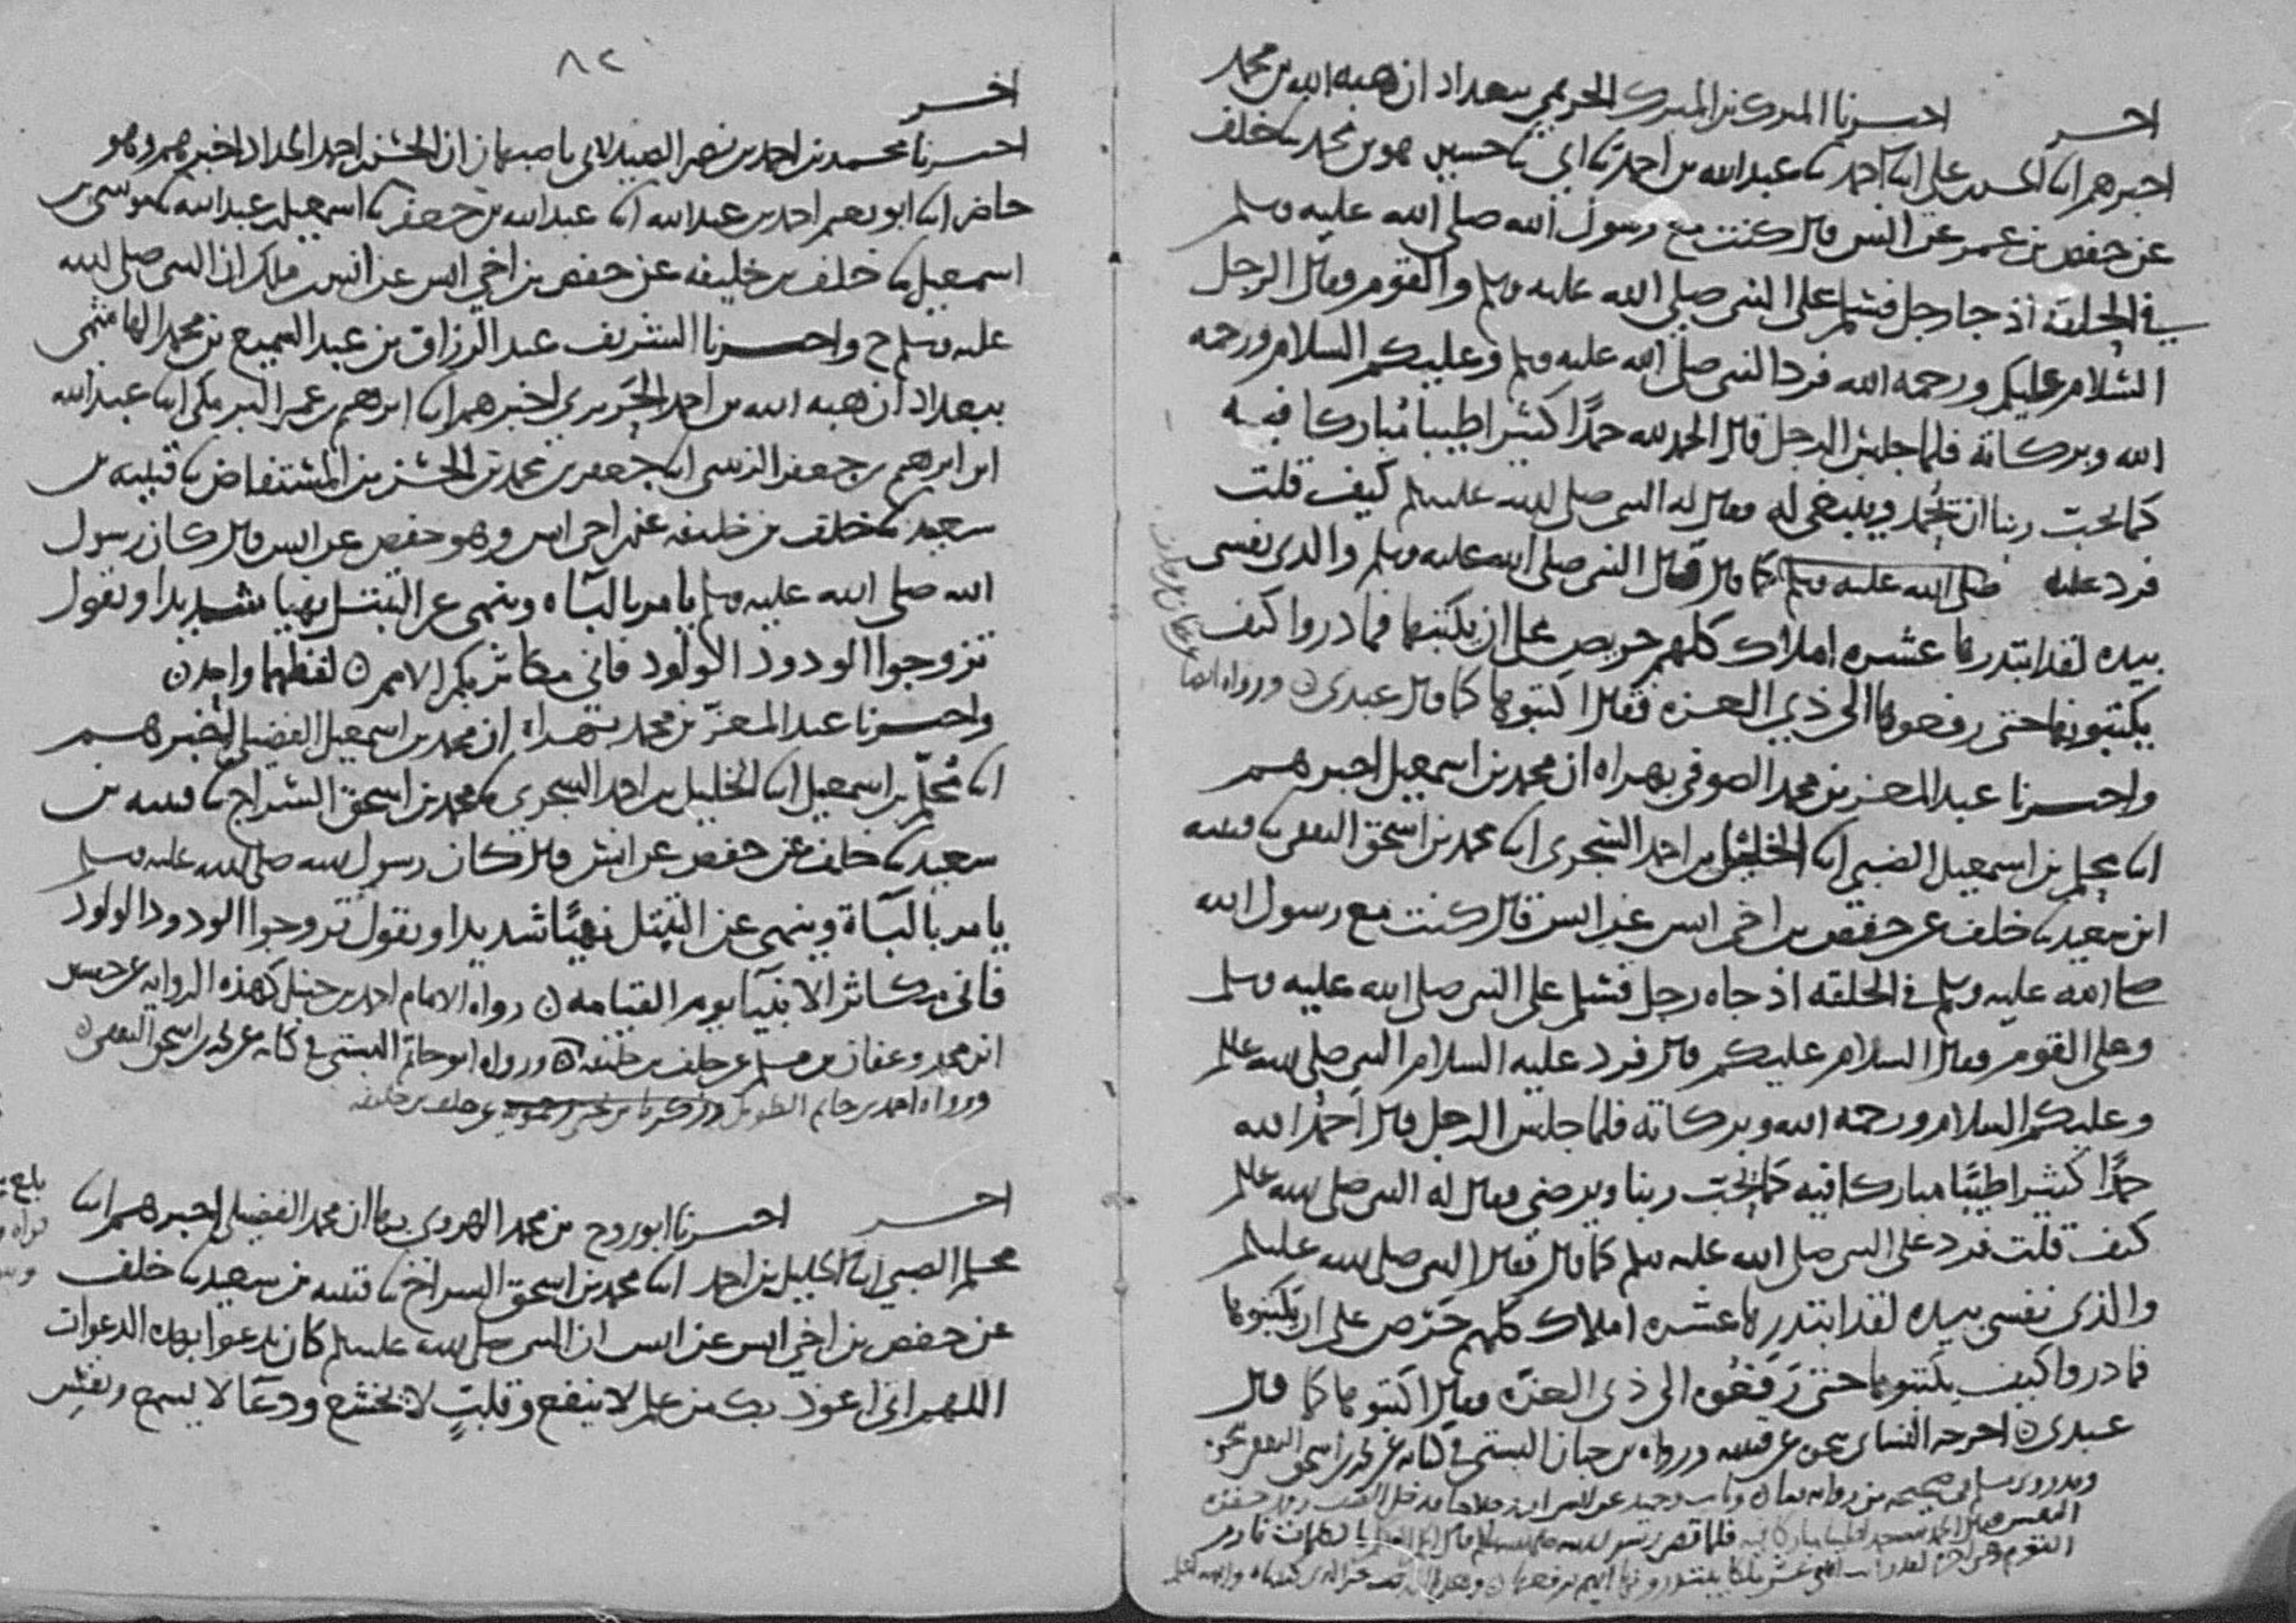 احر احبرنا المبرك بن المبرك الحريمي ببغداد ان هبه الله بن محمد
اخبرهم ابنا الحسن بن علي ابنا احمد ثنا عبد الله بن احمد ثنا ابي ثنا حسين هو بن محمد ثنا خلف
عن حفص بن عمر عن انس قال كنت مع رسول الله صلى الله عليه وسلم
في الحلقه اذ جا رجل فسلم على النبي صلى الله عليه وسلم والقوم فقال الرجل
السلام عليكم ورحمه الله فرد النبي صلى الله عليه وسلم وعليكم السلام ورحمه
الله وبركاته فلما جلس الرجل قال الحمد لله حمدًا كثيرا طيبا مباركا فيه
كما يحب ربنا ان يحمد وينبغي له فقال له النبي صلى الله عليه وسلم كيف قلت
فرد عليه صلى الله عليه وسلم كما قال فقال النبي صلى الله عليه وسلم والذي نفسي
بيده لقد ابتدرها عشره املاك كلهم حريص على ان يكتبها فما دروا كيف
يكتبونها حتى رفعوها الى ذي العزه فقال اكتبوها كما قال عبدي ورواه ايضا
واحبرنا عبد المعز بن محمد الصوفي بهراه ان محمد بن اسمعيل اخبرهم
ابنا محلم بن اسمعيل الضبي ابنا الخليل بن احمد السجزي ابنا محمد بن اسحق الثقفي ثنا قتيبه
ابن سعيد ثنا خلف عن حفص بن اخي انس عن انس قال كنت مع رسول الله
صلى الله عليه وسلم في الحلقه اذ جاه رجل فسلم على النبي صلى الله عليه وسلم
وعلى القوم فقال السلام عليكم قال فرد عليه السلام النبي صلى الله عليه وسلم
وعليكم السلام ورحمه الله وبركاته فلما جلس الرجل قال احمد الله
حمدًا كثيرا طيبًا مباركا فيه كما يحب ربنا ويرضى فقال له النبي صلى الله عليه وسلم
كيف قلت فرد على النبي صلى الله عليه وسلم كما قال فقال النبي صلى الله عليه وسلم
والذي نفسي بيده لقد ابتدرها عشره املاك كلهم حرّص على ان يكتبوها
فما دروا كيف يكتبوها حتى رفعوه الى ذي العزه فقال اكتبوها كما قال
عبدي اخرجه النساي عن قتيبه ورواه بن حبان البستي في كتابه عن محمد بن اسحق الثقفي
٨٢
اخر
احبرنا محمد بن احمد بن نصر الصيدلاني باصبهان ان الحسن بن احمد الحداد اخبرهم وهو
حاضر ابنا ابو نعيم احمد بن عبد الله ابنا عبد الله بن جعفر ثنا اسمعيل بن عبد الله ثنا موسى بن
اسمعيل ثنا خلف بن خليفه عن حفص بن اخي انس عن انس بن ملك ان النبي صلى الله
عليه وسلم ح واحبرنا الشريف عبد الرزاق بن عبد السميع بن محمد الهاشمي
ببغداد ان هبه الله بن احمد الحريري اخبرهم ابنا ابرهيم بن عمر البرمكي ابنا عبد الله
ابن ابرهيم بن جعفر الزينبي ابنا جعفر بن محمد بن الحسن بن المستفاض ثنا قتيبه بن
سعيد ثنا خلف بن خليفه عن ابن اخي انس وهو حفص عن انس قال كان رسول
الله صلى الله عليه وسلم يامر بالباه وينهى عن التبتل نهيا شديدا ويقول
تزوجوا الودود الولود فاني مكاثر بكم الامم لفظهما واحد
واحبرنا عبد المعز بن محمد بهراه ان محمد بن اسمعيل الفضيلي اخبرهم
ابنا محلم بن اسمعيل ابنا الخليل بن احمد السجزي ثنا محمد بن اسحق السراج ثنا قتيبه بن
سعيد ثنا خلف عن حفص عن انس قال كان رسول الله صلى الله عليه وسلم
يامر بالباة وينهى عن التبتل نهيًا شديدا ويقول تزوجوا الودود الولود
فاني مكاثر الانبيا يوم القيامه رواه الامام احمد بن حنبل كهذه الروايه عن حسين
ابن محمد وعفان بن مسلم عن خلف بن خليفه ورواه ابو حاتم البستي في كتابه عن محمد بن اسحق الثقفي
احر احبرنا ابو روح بن محمد الهروي بها ان محمد الفضيلي اخبرهم ابنا
محلم الضبي ابنا الخليل بن احمد ابنا محمد بن اسحق السراج ثنا قتيبه بن سعيد ثنا خلف
عن حفص بن اخي انس عن انس ان النبي صلى الله عليه وسلم كان يدعوا بهذه الدعوات
اللهم اني اعوذ بك من علم لا ينفع وقلبٍ لا يخشع ودعا لا يسمع ونفس